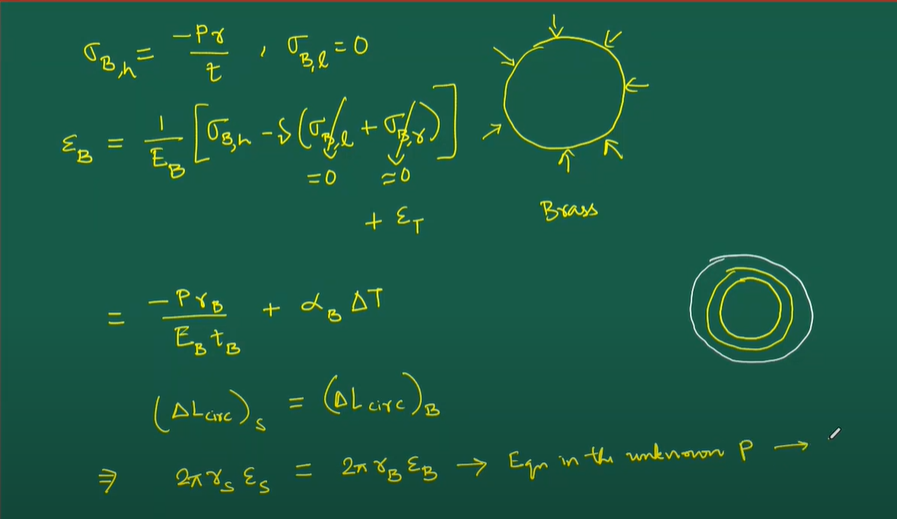 σ_B,h = -Pr/t , σ_B,l = 0
ε_B = 1/E_B [σ_B,h - ν(σ_B,l + σ_B,r)]
=0 ≈0
+ ε_T
Brass
= -Pr_B/(E_B t_B) + α_B ΔT
(ΔL_circ)_S = (ΔL_circ)_B
⇒ 2πr_S ε_S = 2πr_B ε_B → Eqn in the unknown P →